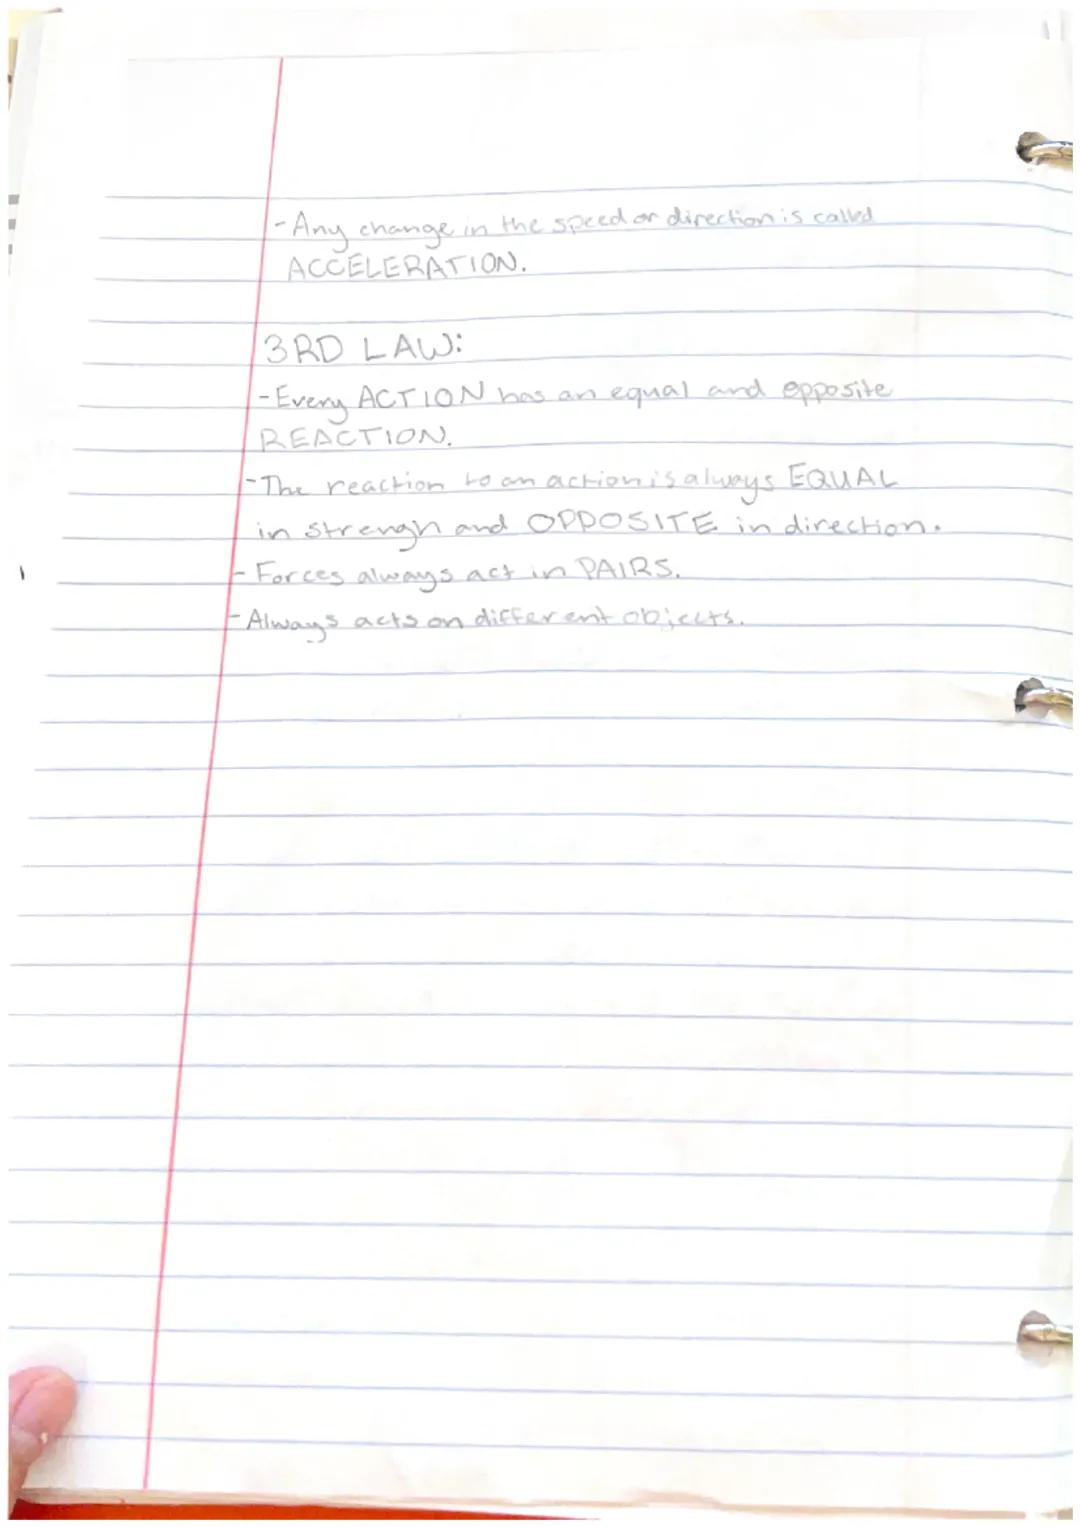 - Any change in the speed or direction is called
ACCELERATION.
3RD LAW:
- Every ACTION has an equal and opposite
REACTION.
- The reaction to an action is always EQUAL
in strengh and OPPOSITE in direction.
- Forces always act in PAIRS.
- Always acts on different objects.